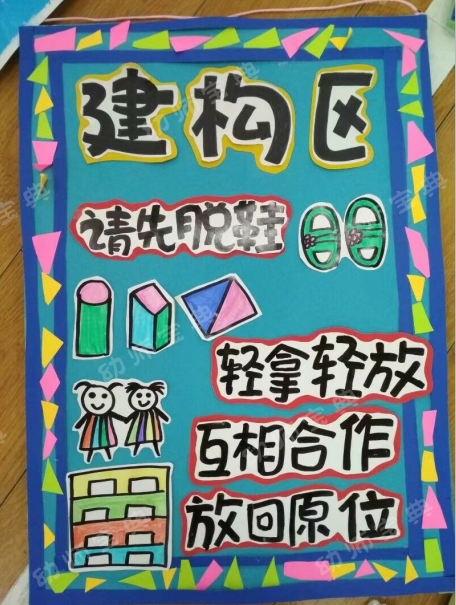 建构区
请先脱鞋
轻拿轻放
互相合作
放回原位
幼师宝典